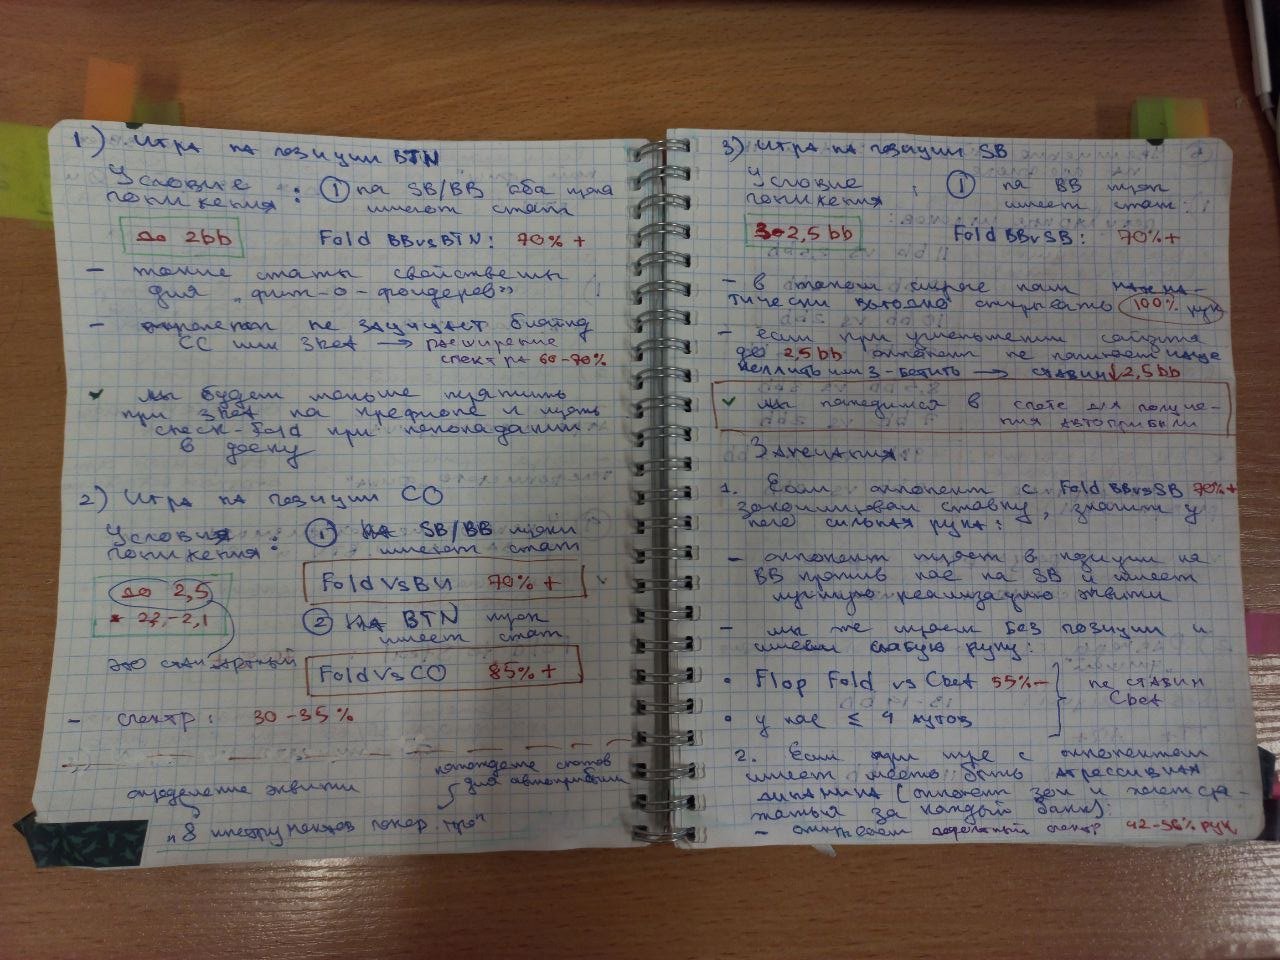 1) Игра на позиции BTN
Условие понижения:
① на SB/BB оба игрока
имеют стат
до 2bb
Fold BBvsBTN: 70%+
– такие статы свойственны
для „фит-о-фолдеров"
– оппонент не защищает блайнд
CC или 3bet → расширение
спектра 60-70%
✓ мы будем меньше
при 3bet на префлопе и играть
check-fold при непопадании
в доску
2) Игра на позиции CO
Условия понижения:
① На SB/BB игроки
имеют стат
до 2,5
Fold vs BU 70%+
* 2,-2,1
② На BTN игрок
имеет стат
это стандартный
Fold vs CO 85%+
– спектр: 30-35%
нахождение спотов
для автоприбыли
определение эквити
„8 инструментов покер. про"
3) Игра на позиции SB
Условие понижения:
① на BB игрок
имеет стат:
3→2,5 bb
Fold BBvsSB: 70%+
– в таком случае нам матема-
тически выгодно открывать 100% рук
– если при уменьшении сайзинга
до 2,5bb оппонент не начинает чаще
коллить или 3-бетить → ставим 2,5bb
✓ мы находимся в споте для получе-
ния автоприбыли
Замечания:
1. Если оппонент с Fold BBvsSB 70%+
заколлировал ставку, значит у
него сильная рука:
– оппонент играет в позиции на
BB против нас на SB и имеет
лучшую реализацию эквити
– мы же играем без позиции и
имеем слабую руку:
• Flop Fold vs Cbet 55%–
• у нас ≤ 4 аутов
не ставим
Cbet
2. Если при игре с оппонентом
имеет место быть агрессивная
динамика (оппонент зол и хочет сра-
жаться за каждый банк):
– открываем спектр 42-56% рук